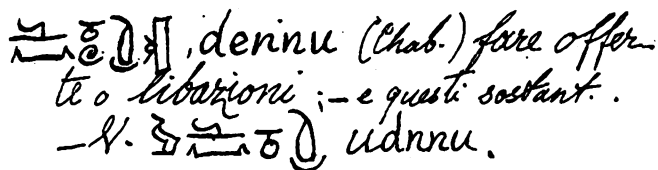 , dennu (Chab.) fare offer-
te o libazioni ; – e questi sostant. .
– V. udnnu.